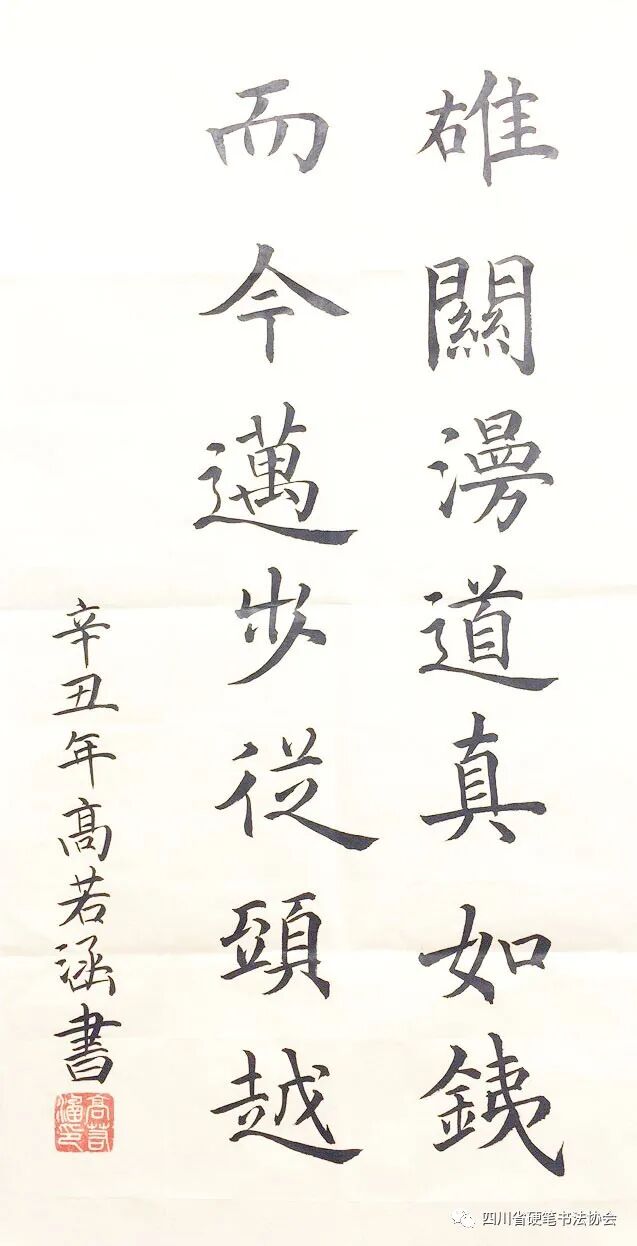 雄關漫道真如銕
而今邁步従頭越
辛丑年髙若涵書
高若涵印
四川省硬笔书法协会